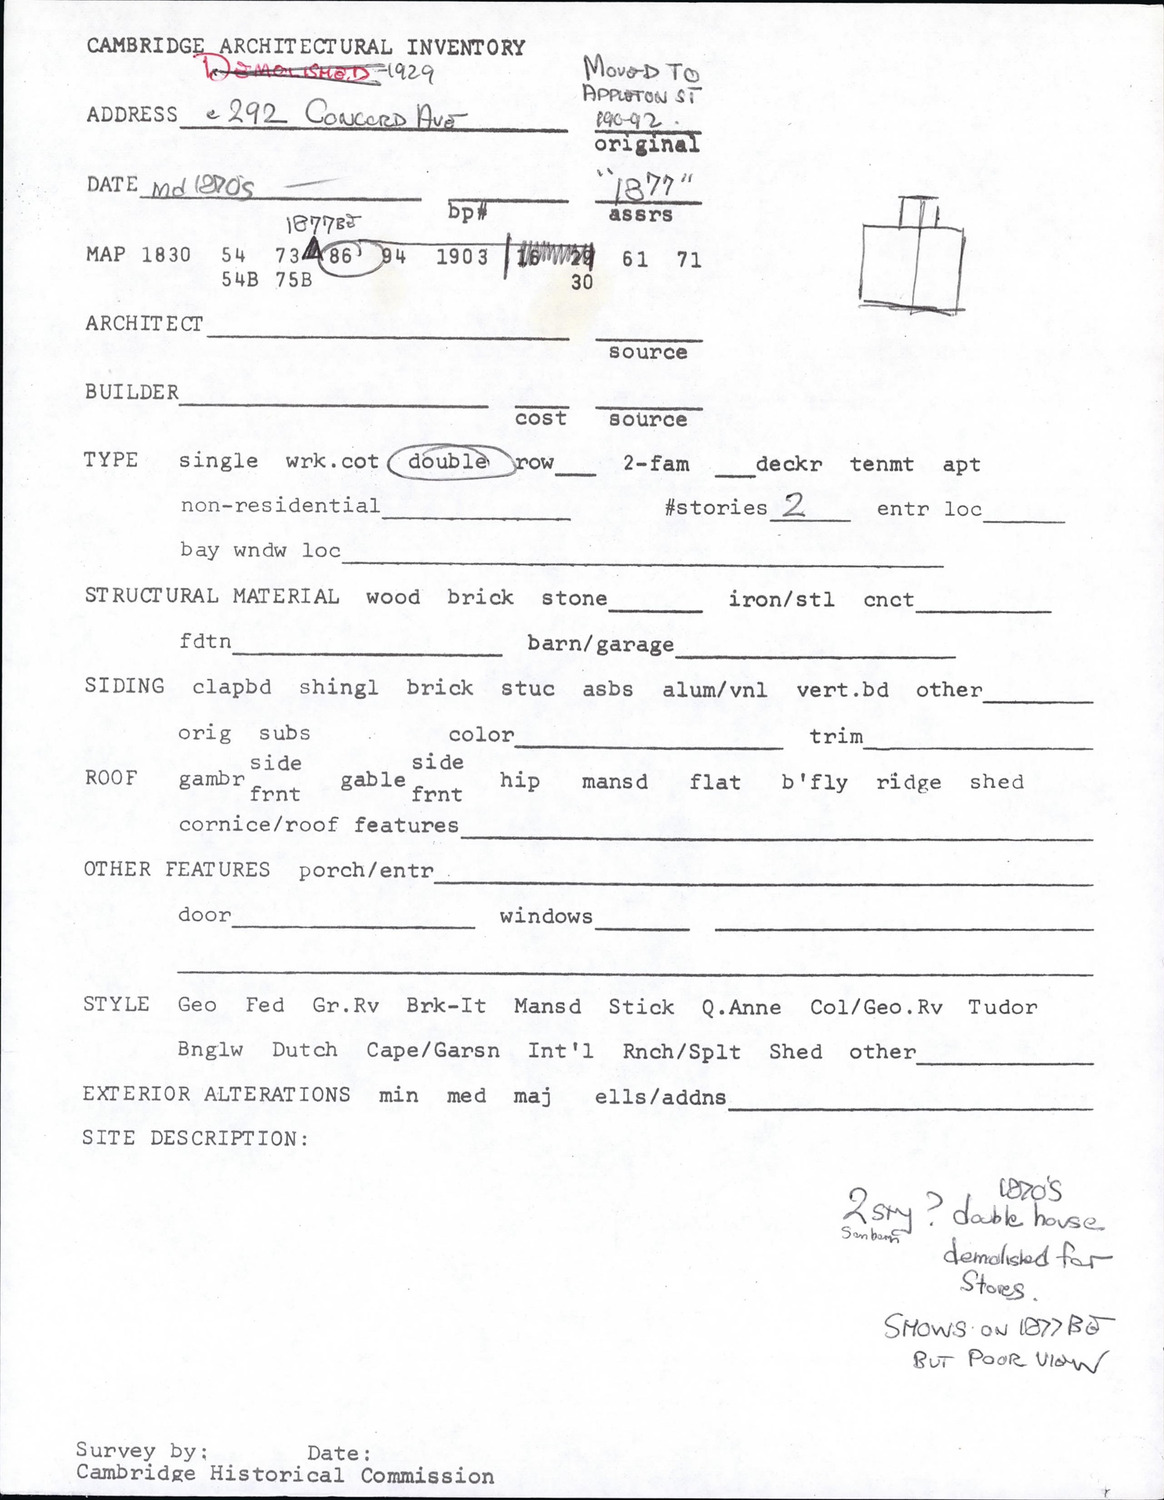 CAMBRIDGE ARCHITECTURAL INVENTORY
DEMOLISHED - 1929
MOVED TO
APPLETON ST
190-92.
ADDRESS 292 CONCORD AVE
original
DATE Md 1870's
bp#
"1877"
assrs
1877BE
MAP 1830 54 73 86 94 1903 16 29 61 71
54B 75B 30
ARCHITECT
source
BUILDER
cost source
TYPE single wrk.cot double row 2-fam deckr tenmt apt
non-residential #stories 2 entr loc
bay wndw loc
STRUCTURAL MATERIAL wood brick stone iron/stl cnct
fdtn barn/garage
SIDING clapbd shingl brick stuc asbs alum/vnl vert.bd other
orig subs color trim
side side
ROOF gambr gable hip mansd flat b'fly ridge shed
frnt frnt
cornice/roof features
OTHER FEATURES porch/entr
door windows
STYLE Geo Fed Gr.Rv Brk-It Mansd Stick Q.Anne Col/Geo.Rv Tudor
Bnglw Dutch Cape/Garsn Int'l Rnch/Splt Shed other
EXTERIOR ALTERATIONS min med maj ells/addns
SITE DESCRIPTION:
1870's
2 sty ? double house
Sanborn
demolished for
Stores.
SHOWS ON 1877 BE
BUT POOR VIEW
Survey by: Date:
Cambridge Historical Commission